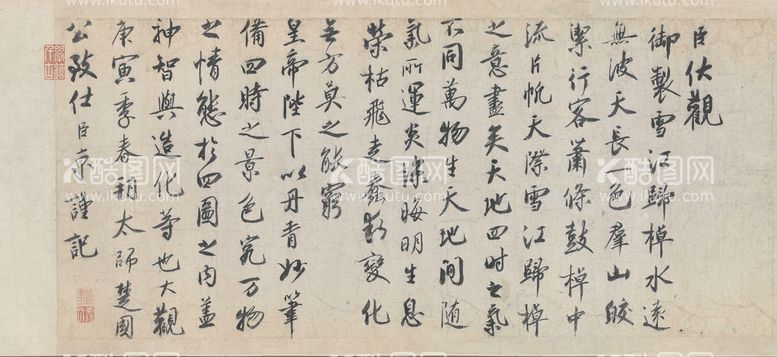 臣伏觀
御製雪江歸棹水遠
無波天長一色羣山皎
潔行客蕭條鼓棹中
流片帆天際雪江歸棹
之意盡矣天地四時之氣
不同萬物生天地間隨
氣所運炎涼晦明生息
榮枯飛走蠢動變化
無方莫之能窮
皇帝陛下以丹青妙筆
備四時之景色究万物
之情態於四圖之內蓋
神智與造化等也大觀
庚寅季春朔太師楚國
公致仕臣京謹記
www.ikutu.com
酷图网